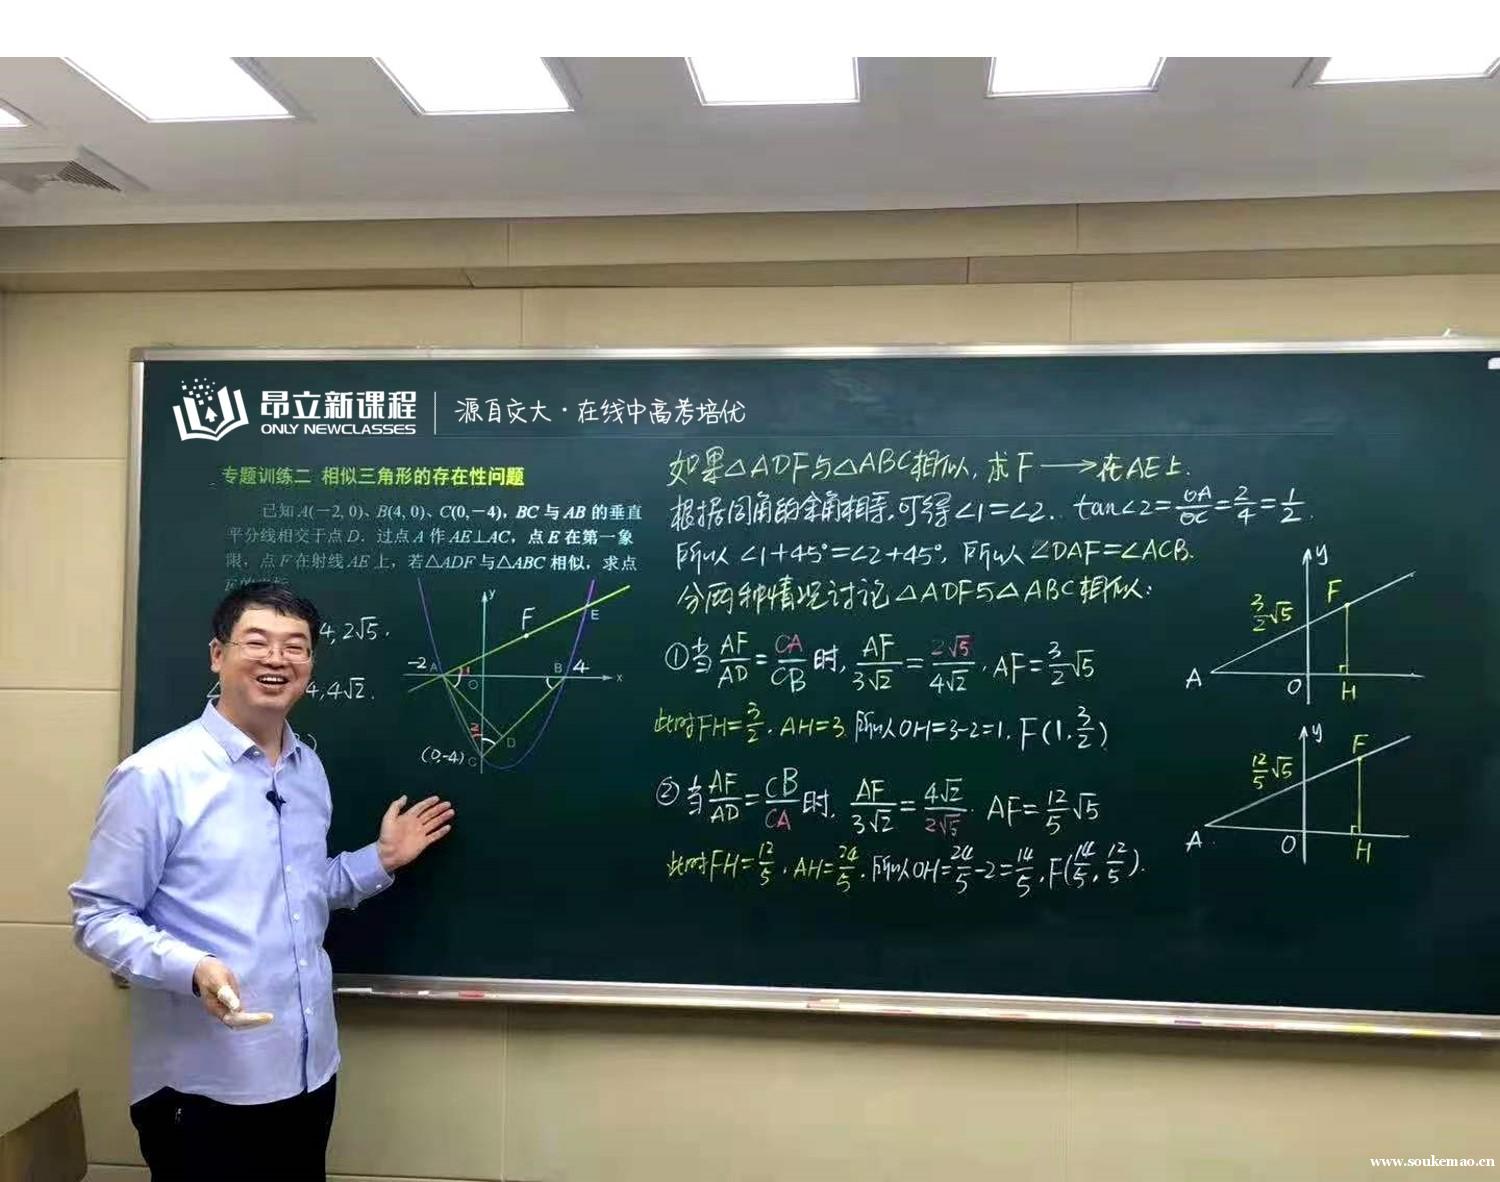 昂立新课程
ONLY NEWCLASSES
源自交大·在线中高考培优
专题训练二 相似三角形的存在性问题
已知 A(−2, 0)、B(4, 0)、C(0,−4), BC 与 AB 的垂直
平分线相交于点 D. 过点 A 作 AE⊥AC, 点 E 在第一象
限, 点 F 在射线 AE 上, 若△ADF 与△ABC 相似, 求点
4, 2√5.
4, 4√2.
y
F
E
-2 A
1
O
B 4
x
2
D
(0,-4) C
如果△ADF与△ABC相似, 求F→在AE上.
根据同角的余角相等, 可得∠1=∠2. tan∠2=OA/OC=2/4=1/2.
所以 ∠1+45°=∠2+45°, 所以 ∠DAF=∠ACB.
分两种情况讨论△ADF与△ABC相似:
①当 AF/AD=CA/CB 时, AF/3√2=2√5/4√2. AF=3/2√5
此时FH=3/2, AH=3. 所以OH=3-2=1, F(1, 3/2)
②当 AF/AD=CB/CA 时, AF/3√2=4√2/2√5. AF=12/5√5
此时FH=12/5, AH=24/5. 所以OH=24/5-2=14/5, F(14/5, 12/5).
y
F
3/2√5
A
O
H
y
F
12/5√5
A
O
H
www.soukemao.cn